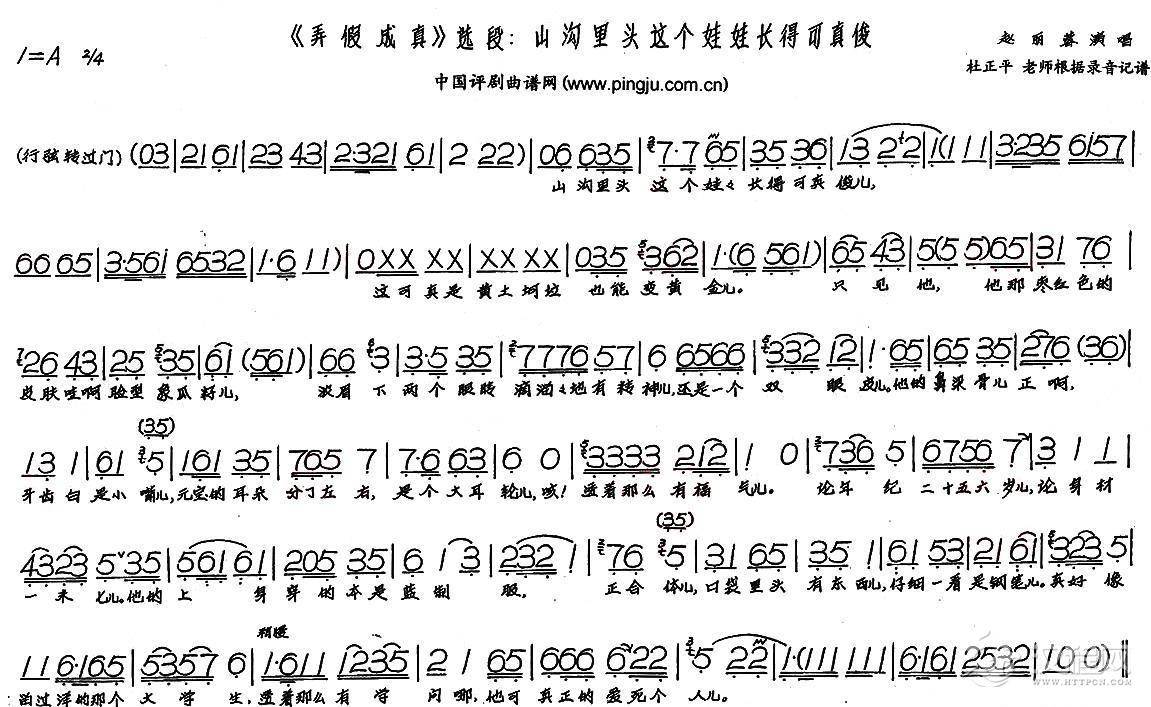 《弄假成真》选段：山沟里头这个娃娃长得可真俊
1=A 2/4
赵丽蓉演唱
中国评剧曲谱网(www.pingju.com.cn)
杜正平 老师根据录音记谱
(行弦转过门) (03|21 61|23 43|2·321 61|2 22)|06 635|7·7 65|35 36|13 2 2|1(111|3·235 6157|
山沟里头 这个娃〻长得可真俊儿，
66 65|3·561 6532|1·6 11)|0XX XX|XX XX|035 362|1·(6 561)|65 43|5(5 5)65|31 76|
这可真是黄土坷垃 也能变黄金儿。 只见他， 他那枣红色的
26 43|25 35|61 (561)|66 3|3·5 35|7776 57|6 6566|332 12|1·65|65 35|276 (36)|
皮肤哇啊脸型象瓜籽儿， 浓眉 下两个眼睛滴溜〻地有转神儿，还是一个双眼皮儿。他的鼻梁骨儿正啊，
(35)
13 1|61 5|161 35|765 7|7·6 63|6 0|3333 212|1 0|736 5|6756 7|3 11|
牙齿白是小嘴儿，元宝的耳朵分了左右，是个大耳轮儿，咳！透着那么有福气儿。论年纪二十五六岁儿，论身材
(35)
4323 5 35|5161 61|205 35|6 13|232 1|76 5|31 65|35 1|61 53|21 61|323 5|
一米七儿。他的上身穿的本是蓝制服。 正合体儿，口袋里头有东西儿，仔细一看是钢笔儿。真好像
稍慢
11 6·165|53357 6|1·611 1235|2 1|65|666 622|5 22|1·(111 111|6·161 2532|1 0 0)‖
留过洋的那个大学生，透着那么有学问哪，他可真正的爱死个人儿。
WWW.HTTPCN.COM